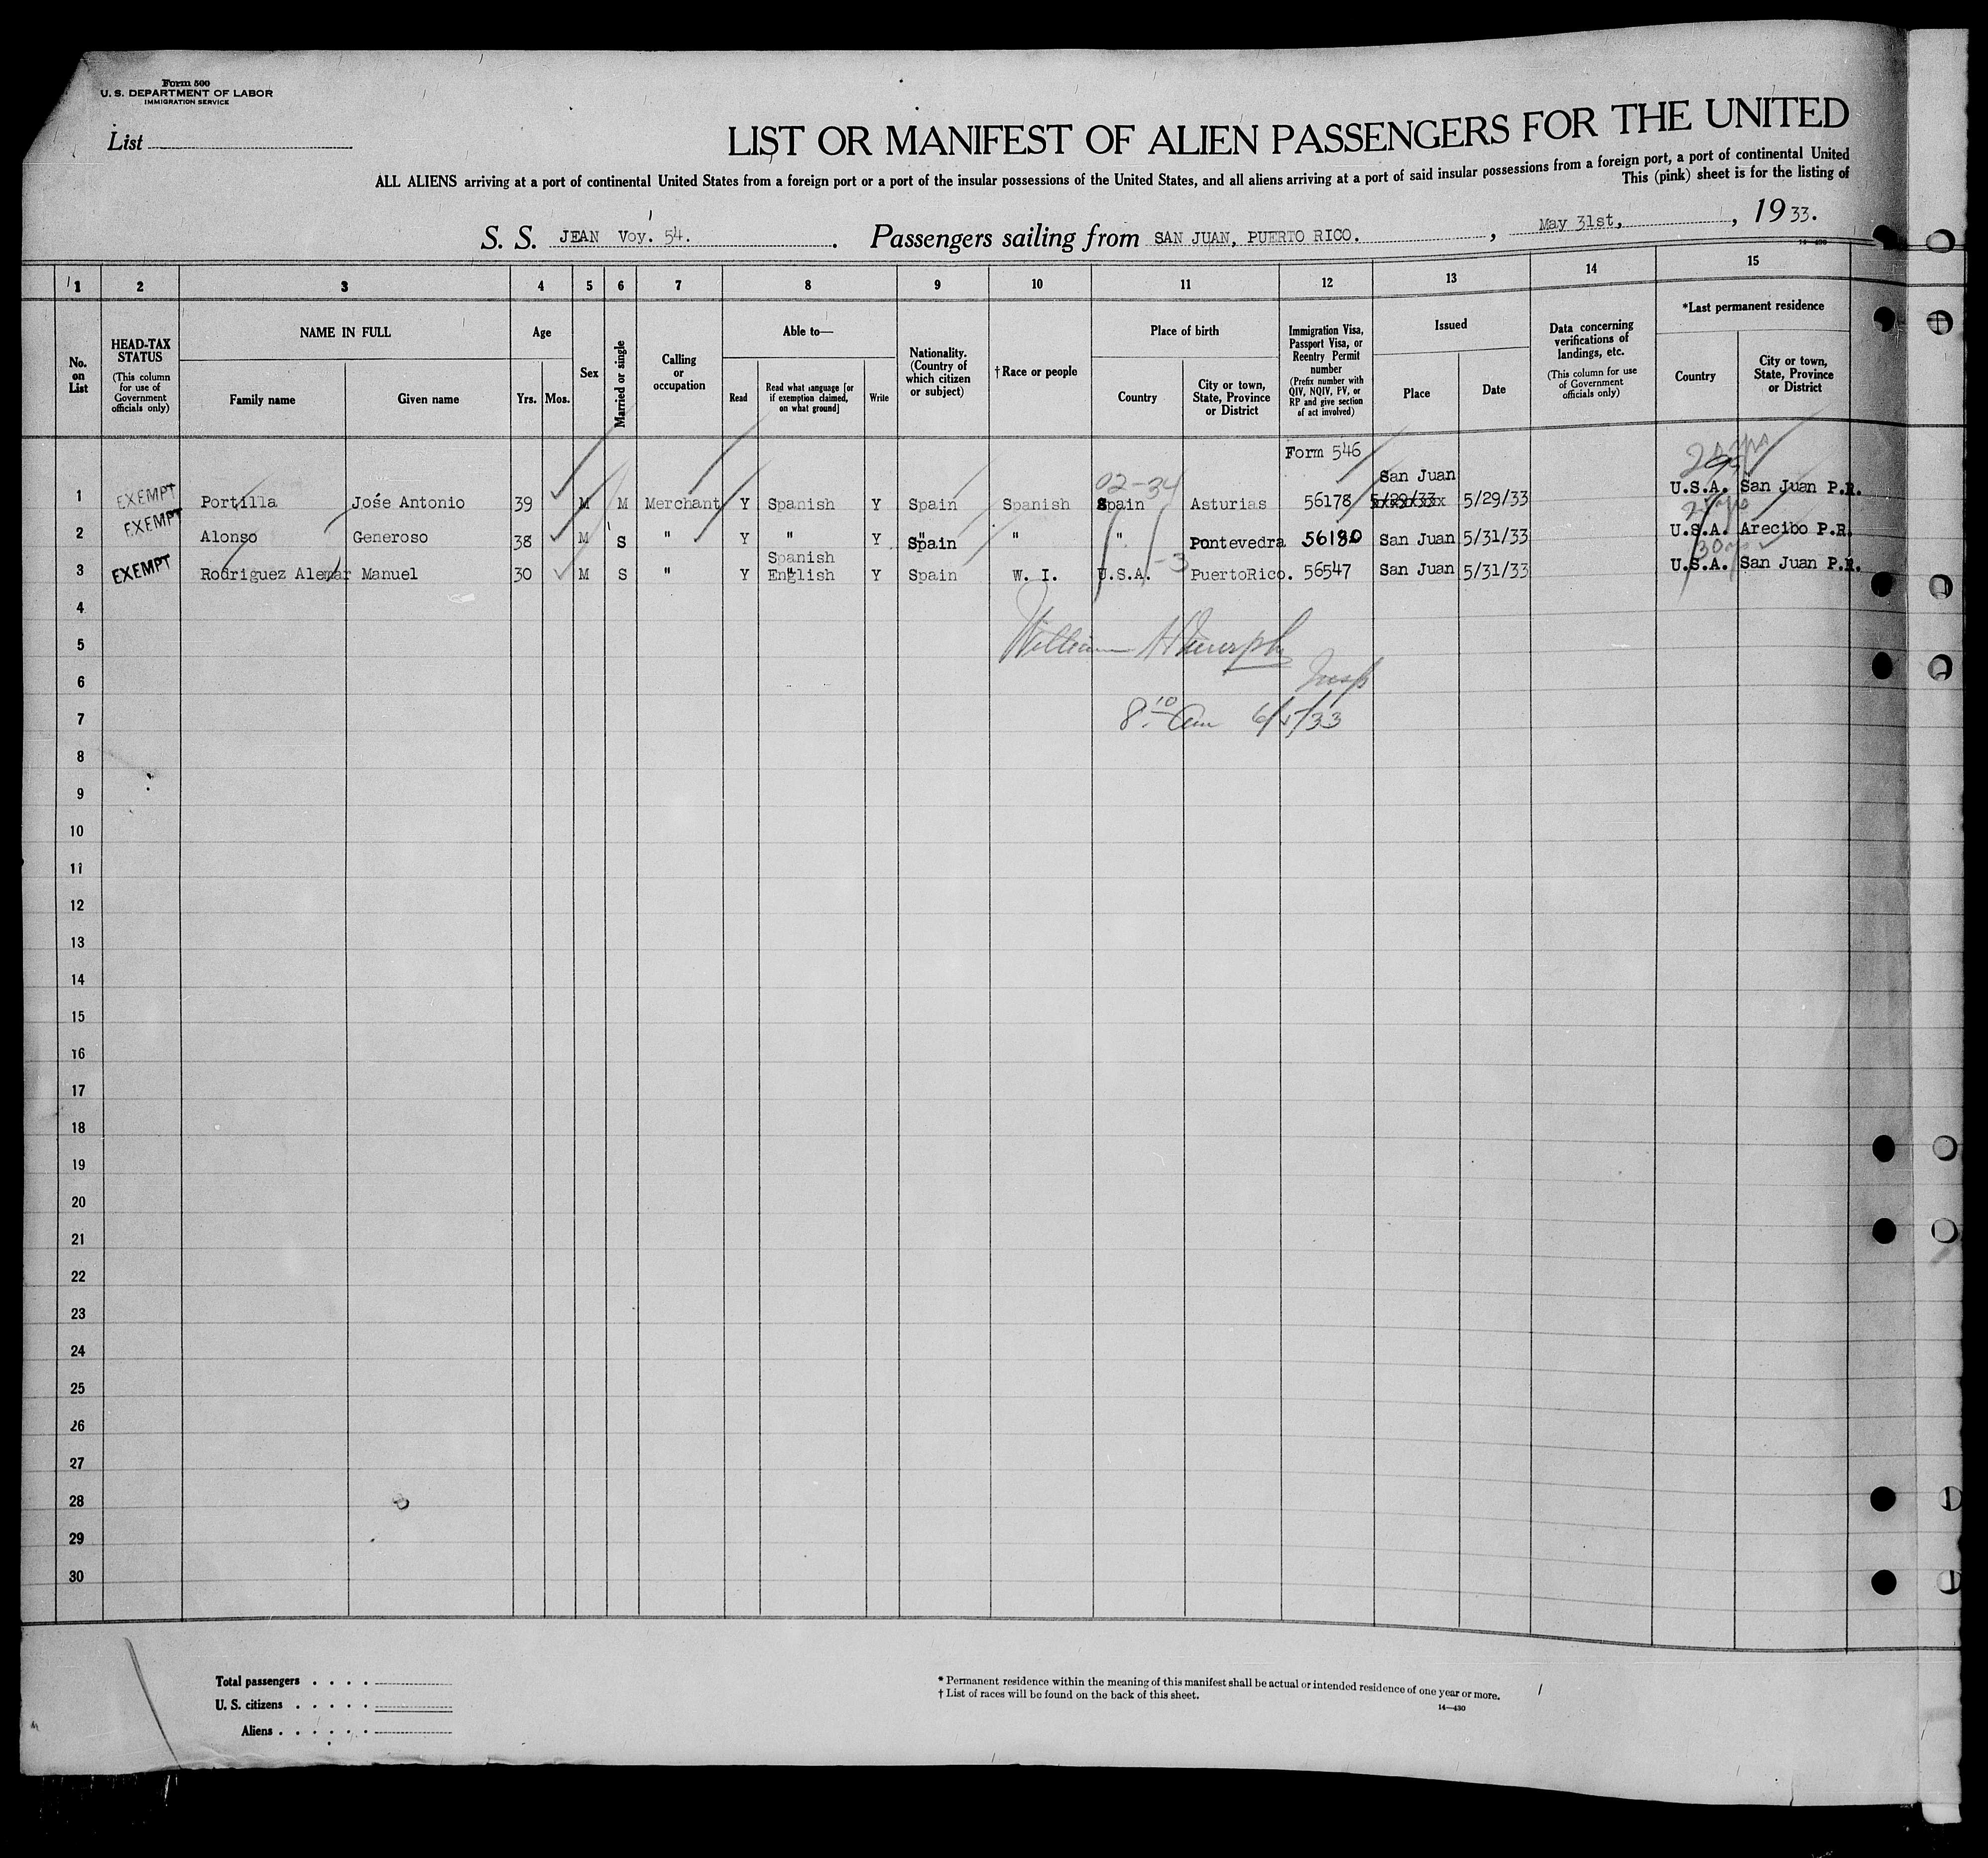 Form 500
U. S. DEPARTMENT OF LABOR
IMMIGRATION SERVICE
List
LIST OR MANIFEST OF ALIEN PASSENGERS FOR THE UNITED
ALL ALIENS arriving at a port of continental United States from a foreign port or a port of the insular possessions of the United States, and all aliens arriving at a port of said insular possessions from a foreign port, a port of continental United
This (pink) sheet is for the listing of
S. S. JEAN Voy. 54. Passengers sailing from SAN JUAN, PUERTO RICO. , May 31st, , 1933.
1 2 3 4 5 6 7 8 9 10 11 12 13 14 15
No. on List
HEAD-TAX STATUS
(This column for use of Government officials only)
NAME IN FULL
Family name
Given name
Age
Yrs. Mos.
Sex
Married or single
Calling or occupation
Able to—
Read
Read what language [or if exemption claimed, on what ground]
Write
Nationality. (Country of which citizen or subject)
†Race or people
Place of birth
Country
City or town, State, Province or District
Immigration Visa, Passport Visa, or Reentry Permit number
(Prefix number with QIV, NQIV, PV, or RP and give section of act involved)
Issued
Place
Date
Data concerning verifications of landings, etc.
(This column for use of Government officials only)
*Last permanent residence
Country
City or town, State, Province or District
Form 546
02-34
San Juan
1 EXEMPT Portilla José Antonio 39 M M Merchant Y Spanish Y Spain Spanish Spain Asturias 56178 5/29/33 5/29/33 U.S.A. San Juan P.R.
2 EXEMPT Alonso Generoso 38 M S " Y " Y Spain " " Pontevedra 56180 San Juan 5/31/33 U.S.A. Arecibo P.R.
Spanish
3 EXEMPT Rodriguez Alemar Manuel 30 M S " Y English Y Spain W. I. U.S.A. PuertoRico. 56547 San Juan 5/31/33 U.S.A. San Juan P.R.
4
5
William H Murphy
6
Insp
7
8:10 Am 6/5/33
8
9
10
11
12
13
14
15
16
17
18
19
20
21
22
23
24
25
26
27
28
29
30
Total passengers . . . .
U. S. citizens . . . . .
Aliens . . . . . .
* Permanent residence within the meaning of this manifest shall be actual or intended residence of one year or more.
† List of races will be found on the back of this sheet.
14—430